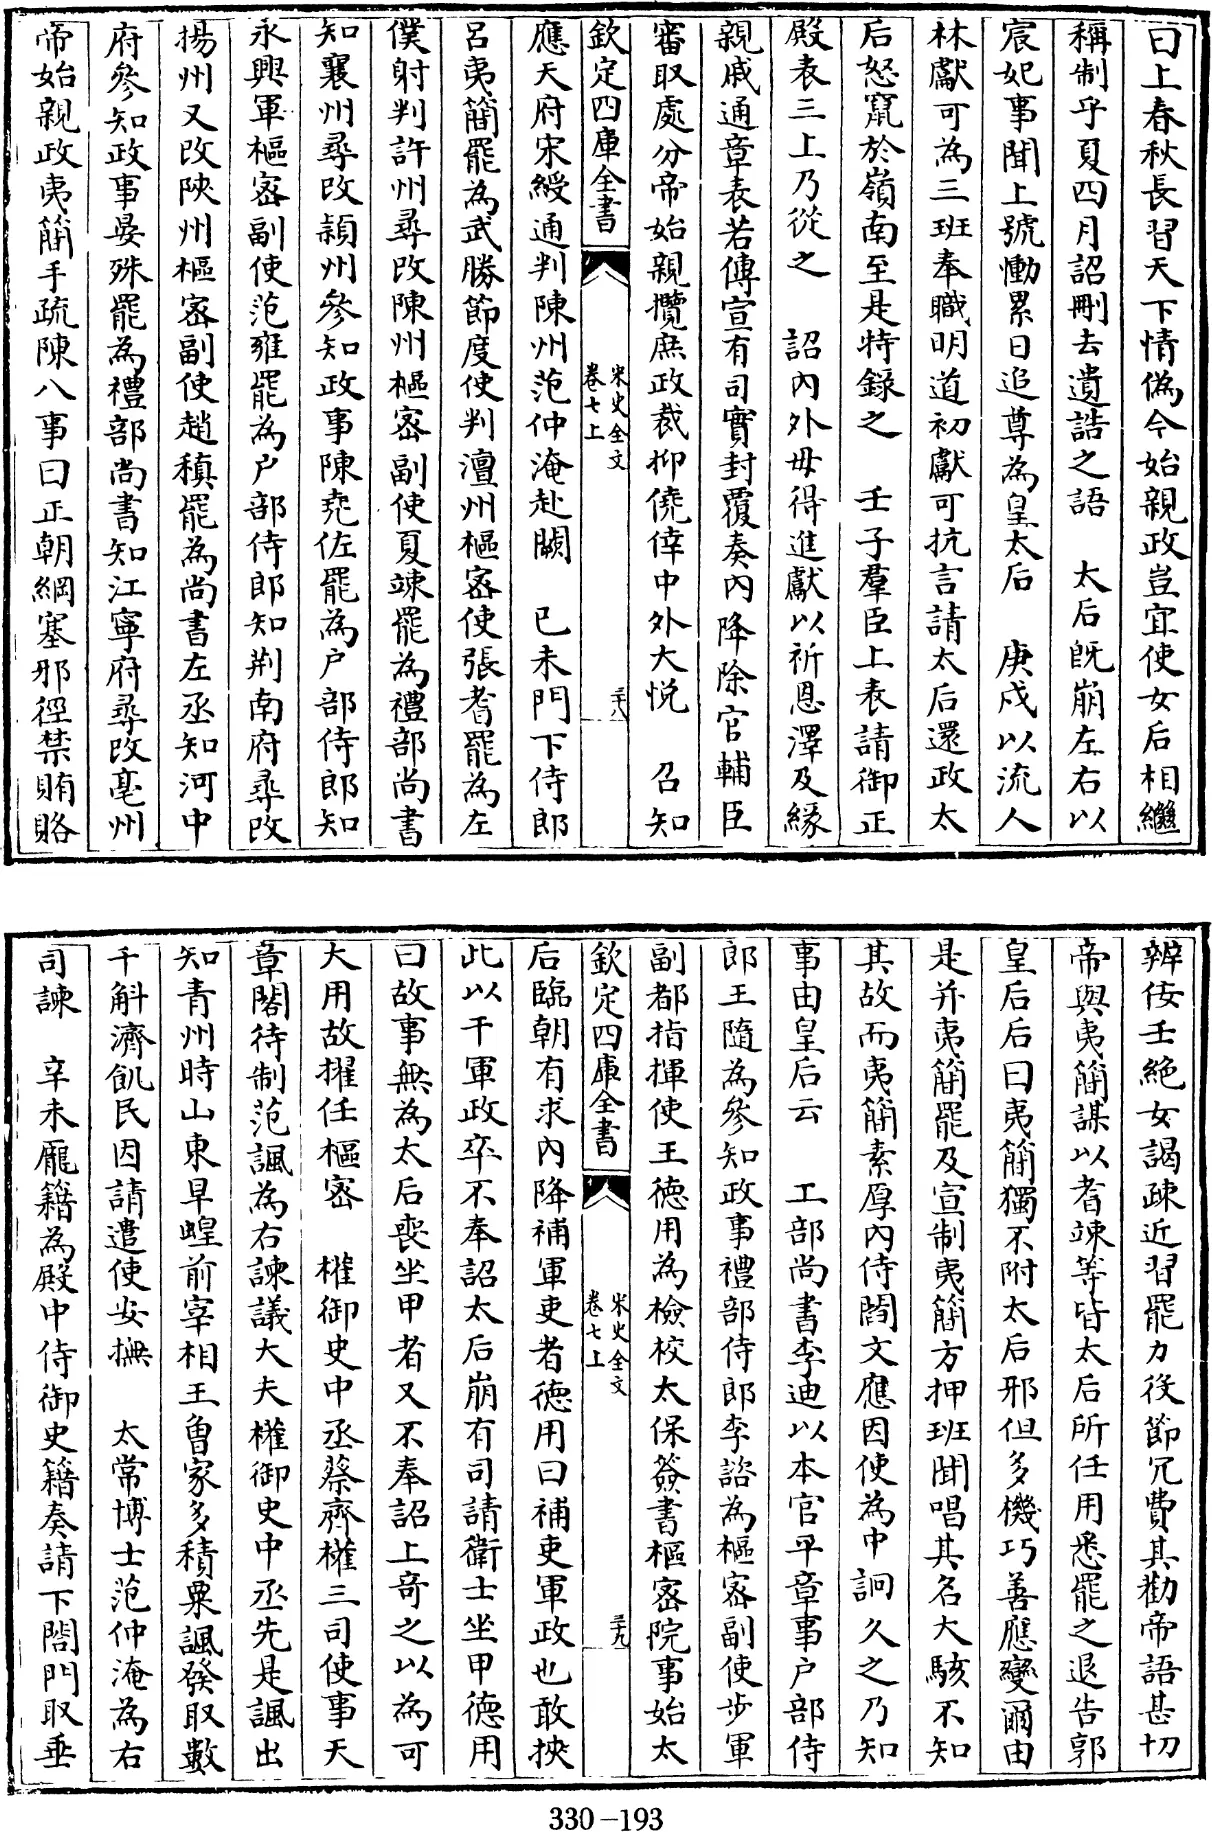 曰上春秋長習天下情偽今始親政豈宜使女后相繼
稱制乎夏四月詔刪去遺誥之語　太后既崩左右以
宸妃事聞上號慟累日追尊為皇太后　庚戌以流人
林獻可為三班奉職明道初獻可抗言請太后還政太
后怒竄於嶺南至是特錄之　壬子羣臣上表請御正
殿表三上乃從之　詔內外毋得進獻以祈恩澤及緣
親戚通章表若傳宣有司實封覆奏內降除官輔臣
審取處分帝始親攬庶政裁抑僥倖中外大悅　召知
欽定四庫全書　宋史全文卷七上　三十八
應天府宋綬通判陳州范仲淹赴闕　已未門下侍郎
呂夷簡罷為武勝節度使判澶州樞密使張耆罷為左
僕射判許州尋改陳州樞密副使夏竦罷為禮部尚書
知襄州尋改潁州參知政事陳堯佐罷為户部侍郎知
永興軍樞密副使范雍罷為户部侍郎知荆南府尋改
揚州又改陜州樞密副使趙稹罷為尚書左丞知河中
府參知政事晏殊罷為禮部尚書知江寧府尋改亳州
帝始親政夷簡手疏陳八事曰正朝綱塞邪徑禁賄賂
辨佞壬絶女謁疎近習罷力役節冗費其勸帝語甚切
帝與夷簡謀以耆竦等皆太后所任用悉罷之退告郭
皇后后曰夷簡獨不附太后邪但多機巧善應變爾由
是并夷簡罷及宣制夷簡方押班聞唱其名大駭不知
其故而夷簡素厚內侍閻文應因使為中詗久之乃知
事由皇后云　工部尚書李迪以本官平章事户部侍
郎王隨為參知政事禮部侍郎李諮為樞密副使步軍
副都指揮使王德用為檢校太保簽書樞密院事始太
欽定四庫全書　宋史全文卷七上　三十九
后臨朝有求內降補軍吏者德用曰補吏軍政也敢挾
此以干軍政卒不奉詔太后崩有司請衛士坐甲德用
曰故事無為太后喪坐甲者又不奉詔上奇之以為可
大用故擢任樞密　權御史中丞蔡齊權三司使事天
章閣待制范諷為右諫議大夫權御史中丞先是諷出
知青州時山東旱蝗前宰相王曾家多積粟諷發取數
千斛濟飢民因請遣使安撫　太常博士范仲淹為右
司諫　辛未龐籍為殿中侍御史籍奏請下閤門取垂
330-193